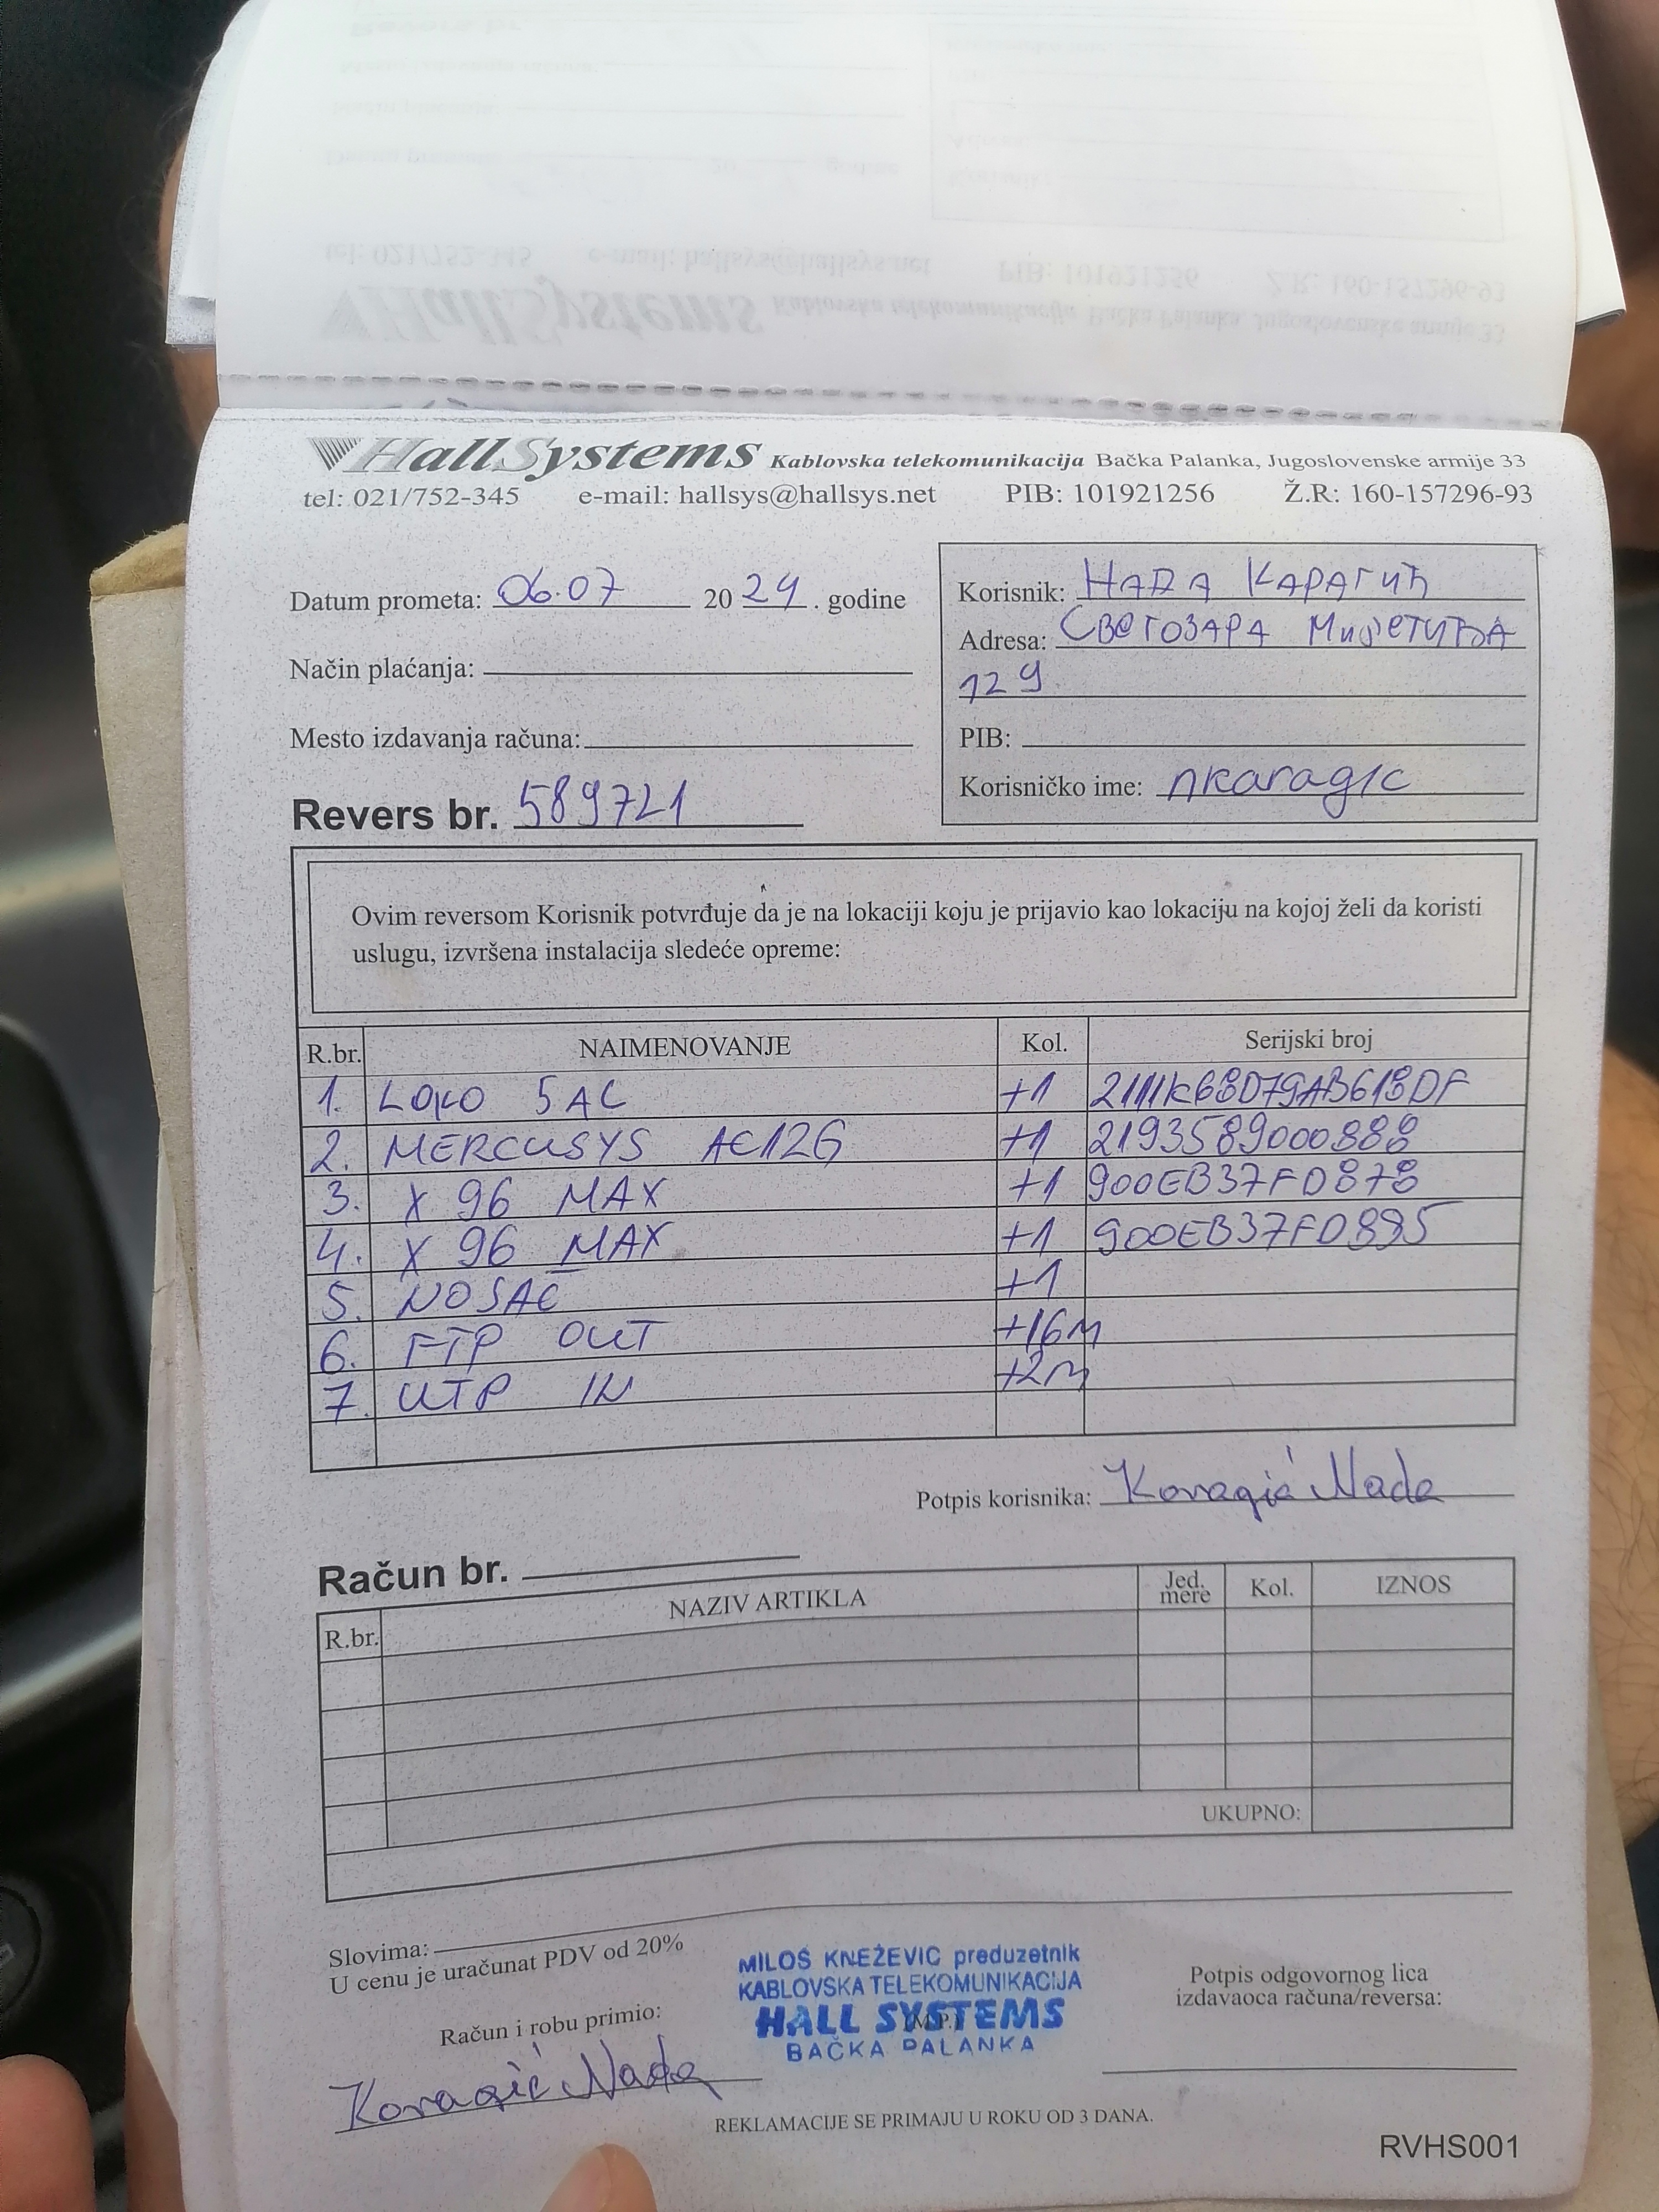 HallSystems Kablovska telekomunikacija Bačka Palanka, Jugoslovenske armije 33
tel: 021/752-345 e-mail: hallsys@hallsys.net PIB: 101921256 Ž.R: 160-157296-93
Datum prometa: 06.07 2024. godine
Način plaćanja:
Mesto izdavanja računa:
Revers br. 589721
Korisnik: НАДА КАРАГИЋ
Adresa: СВЕТОЗАРА МИЛЕТИЋА
129
PIB:
Korisničko ime: nkaragic
Ovim reversom Korisnik potvrđuje da je na lokaciji koju je prijavio kao lokaciju na kojoj želi da koristi
uslugu, izvršena instalacija sledeće opreme:
R.br. NAIMENOVANJE Kol. Serijski broj
1. LOKO 5AC +1 2111K68D79AB618DF
2. MERCUSYS AC12G +1 2193589000888
3. X 96 MAX +1 900EB37FD878
4. X 96 MAX +1 900EB37FD895
5. NOSAČ +1
6. FTP OUT +16m
7. UTP IN +2m
Potpis korisnika: Karagić Nada
Račun br.
R.br. NAZIV ARTIKLA Jed. mere Kol. IZNOS
UKUPNO:
Slovima:
U cenu je uračunat PDV od 20%
Račun i robu primio:
Karagić Nada
MILOŠ KNEŽEVIĆ preduzetnik
KABLOVSKA TELEKOMUNIKACIJA
HALL SYSTEMS
(M.P.)
BAČKA PALANKA
Potpis odgovornog lica
izdavaoca računa/reversa:
REKLAMACIJE SE PRIMAJU U ROKU OD 3 DANA.
RVHS001